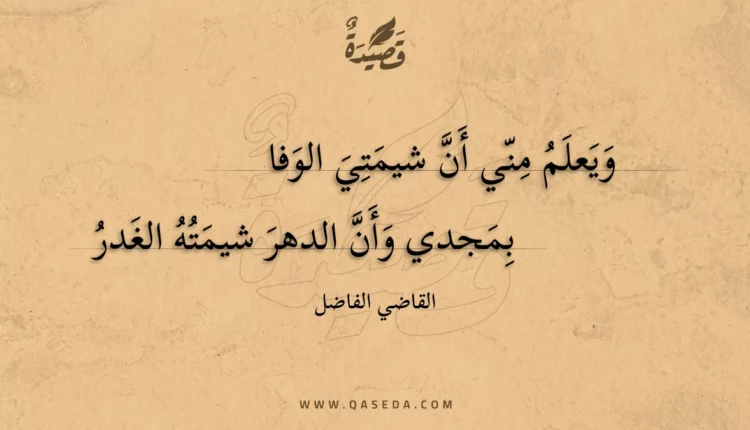 قَصِيدَةٌ
وَيَعلَمُ مِنّي أَنَّ شيمَتِيَ الوَفا
بِمَجدي وَأَنَّ الدهرَ شيمَتُهُ الغَدرُ
القاضي الفاضل
WWW.QASEDA.COM